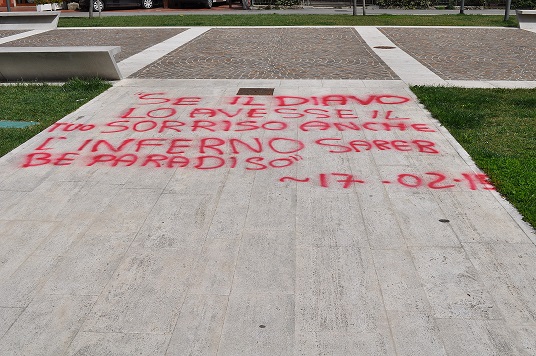 "SE IL DIAVO
LO AVESSE IL
TUO SORRISO ANCHE
L'INFERNO SAREB
BE PARADISO"
~17-02-15